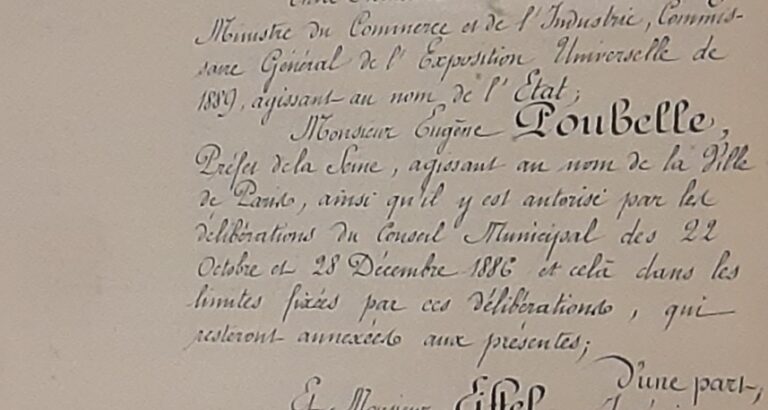 Ministre du Commerce et de l'Industrie, Commis-
saire Général de l'Exposition Universelle de
1889, agissant au nom de l'Etat;
Monsieur Eugène Poubelle,
Préfet de la Seine, agissant au nom de la Ville
de Paris, ainsi qu'il y est autorisé par les
délibérations du Conseil Municipal des 22
Octobre et 28 Décembre 1886 et celà dans les
limites fixées par ces délibérations, qui
resteront annexées aux présentes;
D'une part,
Et Monsieur Eiffel